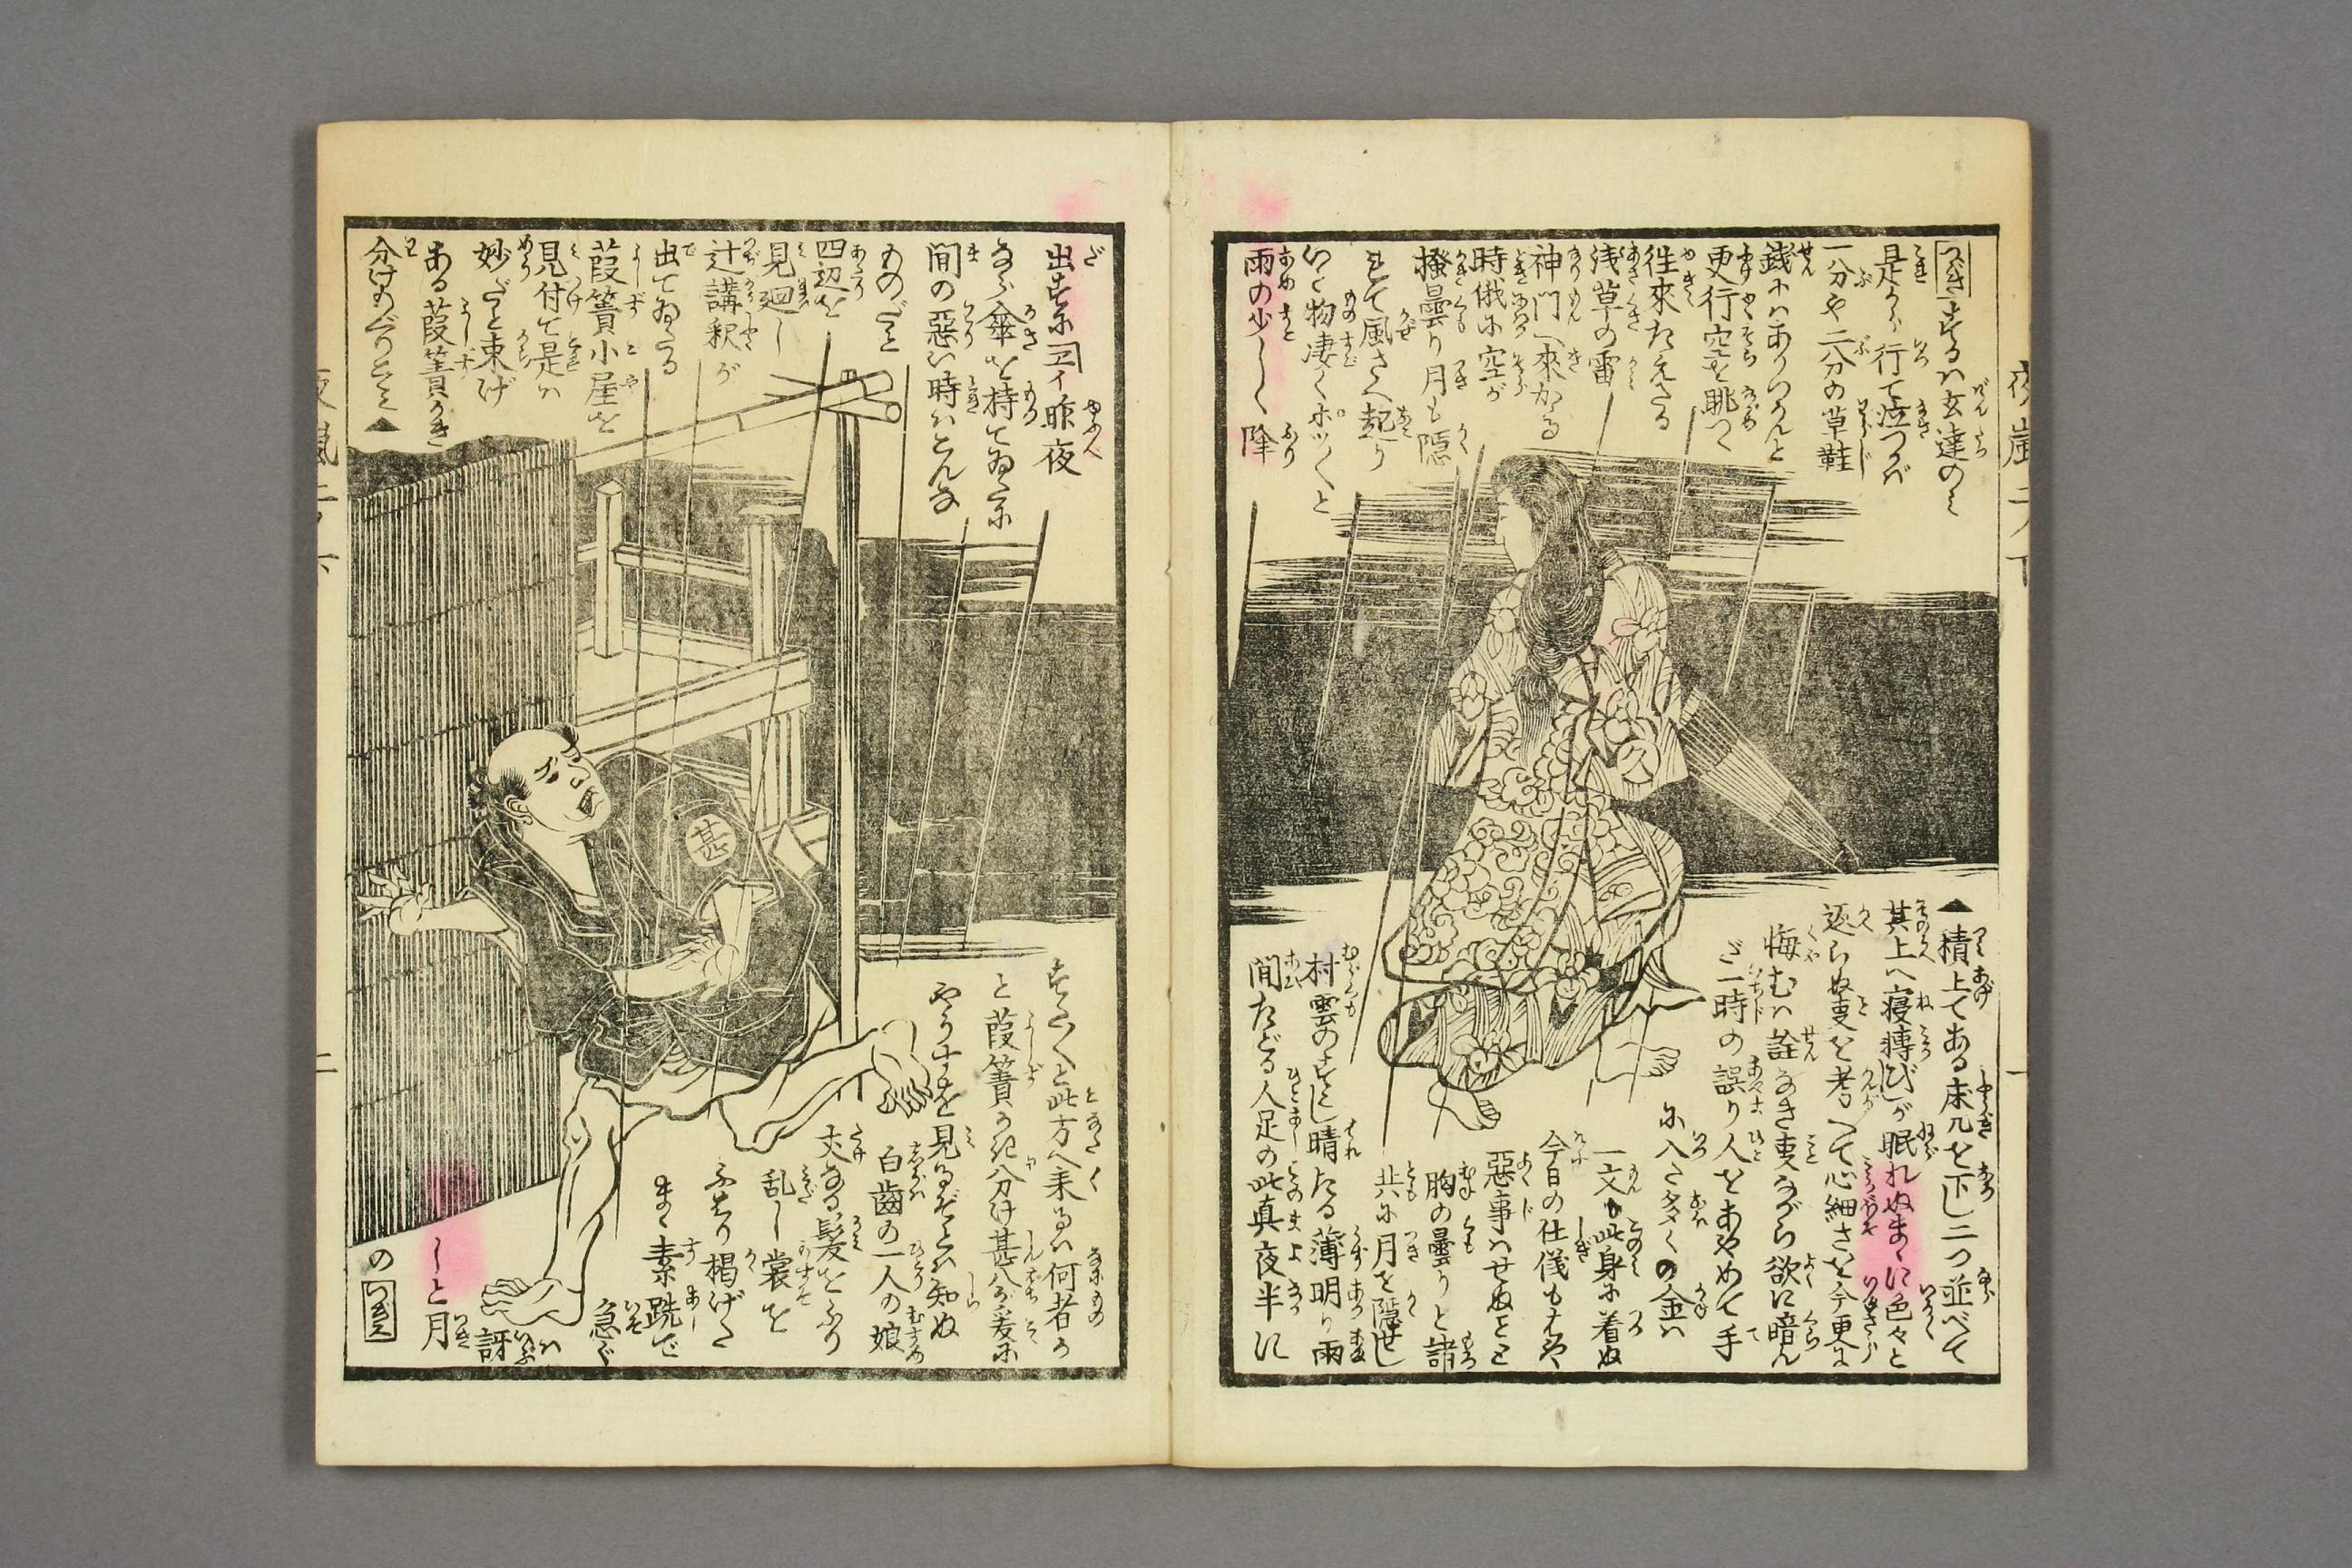 つぎするハ玄達のミ
是から行て泣つかバ
一分や二分の草鞋
銭ハありつらんと
更行空を眺つゝ
徃來たえたる
浅草の雷
神門へ來かゝる
時俄に空が
掻曇り月も隠
れて風さへ起り
いと物凄くポツ〱と
雨の少しく降
出すに「エイ昨夜
なら傘を持てゐたに
間の惡い時ハこんな
ものだと
四辺を
見廻し
辻講釈が
出てゐたる
葭簀小屋を
見付て是ハ
妙だと束げ
ある葭簀かき
分けもぐりこミ▲
▲積上てある床几を下し三つ並べて
其上へ寝轉びしが眠れぬまゝに色々と
返らぬ事を考へて心細さを今更に
悔むハ詮なき事ながら欲に暗ん
だ一時の誤り人をあやめて手
に入た多くの金ハ
一文も此身に着ぬ
今日の仕儀もはや
惡事ハせぬことと
胸の曇りと諸
共に月を隠せし
村雲のすこし晴たる薄明り雨
間たどる人足の此真夜半に
すた〱と此方へ来るハ何者か
と葭簀かき分け甚八が爰に
やうすを見るぞとハ知ぬ
白齒の一人の娘
丈なる髪をふり
乱し裳を
ふたり掲げた
まゝ素跣で
急ぐ
ハ訝
しと月
の つぎへ
甚
夜嵐二ノ下
一
二